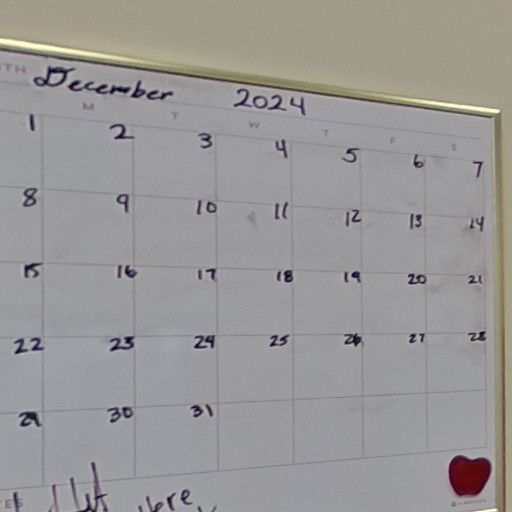 TH December 2024
M T W T F S
1 2 3 4 5 6 7
8 9 10 11 12 13 14
15 16 17 18 19 20 21
22 23 24 25 26 27 28
29 30 31